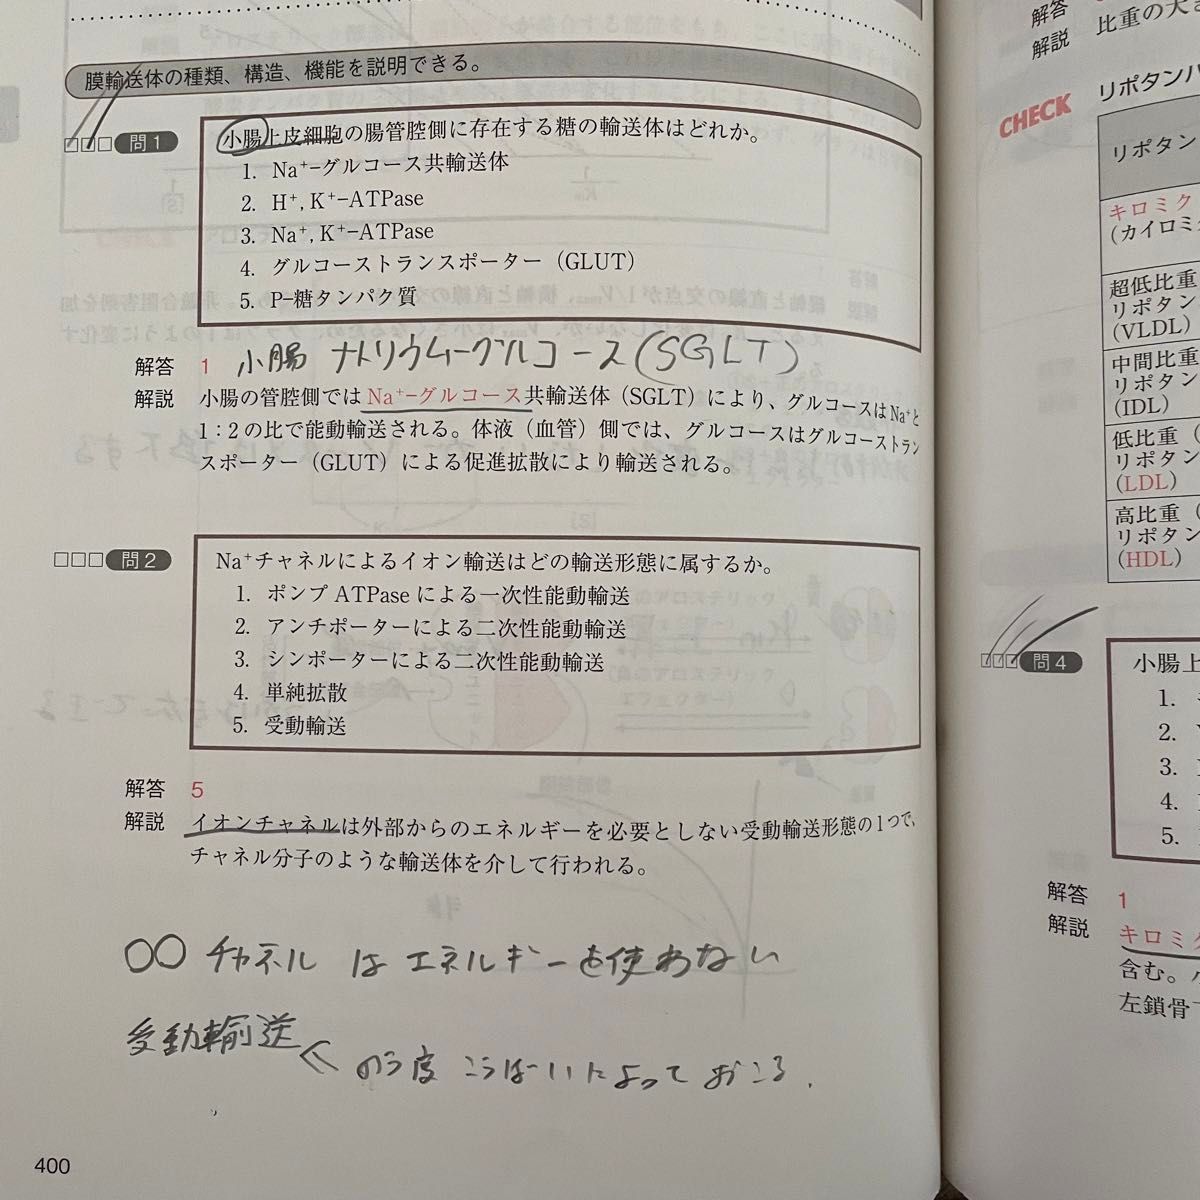 膜輸送体の種類、構造、機能を説明できる。
□□□ 問1
小腸上皮細胞の腸管腔側に存在する糖の輸送体はどれか。
1. Na⁺−グルコース共輸送体
2. H⁺, K⁺−ATPase
3. Na⁺, K⁺−ATPase
4. グルコーストランスポーター（GLUT）
5. P−糖タンパク質
解答 1 小腸 ナトリウムーグルコース(SGLT)
解説 小腸の管腔側ではNa⁺−グルコース共輸送体（SGLT）により、グルコースはNa⁺と
1：2の比で能動輸送される。体液（血管）側では、グルコースはグルコーストラン
スポーター（GLUT）による促進拡散により輸送される。
□□□ 問2
Na⁺チャネルによるイオン輸送はどの輸送形態に属するか。
1. ポンプATPaseによる一次性能動輸送
2. アンチポーターによる二次性能動輸送
3. シンポーターによる二次性能動輸送
4. 単純拡散
5. 受動輸送
解答 5
解説 イオンチャネルは外部からのエネルギーを必要としない受動輸送形態の1つで、
チャネル分子のような輸送体を介して行われる。
○○チャネル はエネルギーを使わない
受動輸送 のう度 こうばいによって おこる.
400
解答
解説 比重の大き
CHECK リポタンパ
リポタン
キロミク
(カイロミ
超低比重
リポタン
(VLDL)
中間比重
リポタン
(IDL)
低比重（
リポタン
(LDL)
高比重（
リポタン
(HDL)
□□□ 問4
小腸上
1.
2.
3.
4.
5.
解答 1
解説 キロミク
含む。
左鎖骨